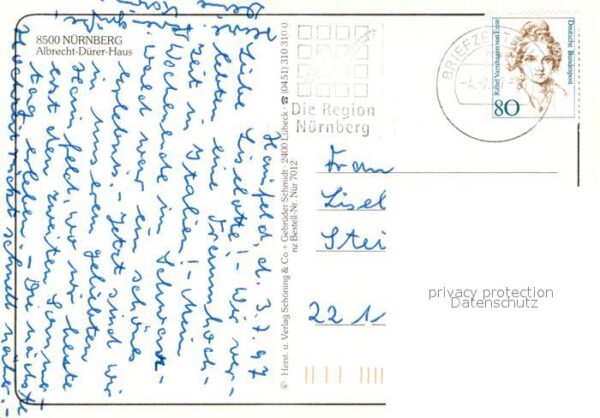 8500 NÜRNBERG
Albrecht-Dürer-Haus
Hainfeld, d. 3.7.97
Liebe Liselotte! – Wir ver-
leben eine Traumhoch-
zeit in Italien! – Mein
Wochenende im Schwarz-
wald war ein schönes
Erlebnis. – Jetzt sind wir
in unserem geliebten
Hainfeld, wo wir heute
erst den zweiten Sommer-
tag erleben – Die nächste
© Herst. u. Verlag Schöning & Co + Gebrüder Schmidt · 2400 Lübeck ☎ (0451) 310 310 0
nz Bestell-Nr. Nür 7012
Die Region
Nürnberg
BRIEFZENT
Rahel Varnhagen von Ense
Deutsche Bundespost
80
Frau
Lisel
Stei
22 1
privacy protection
Datenschutz